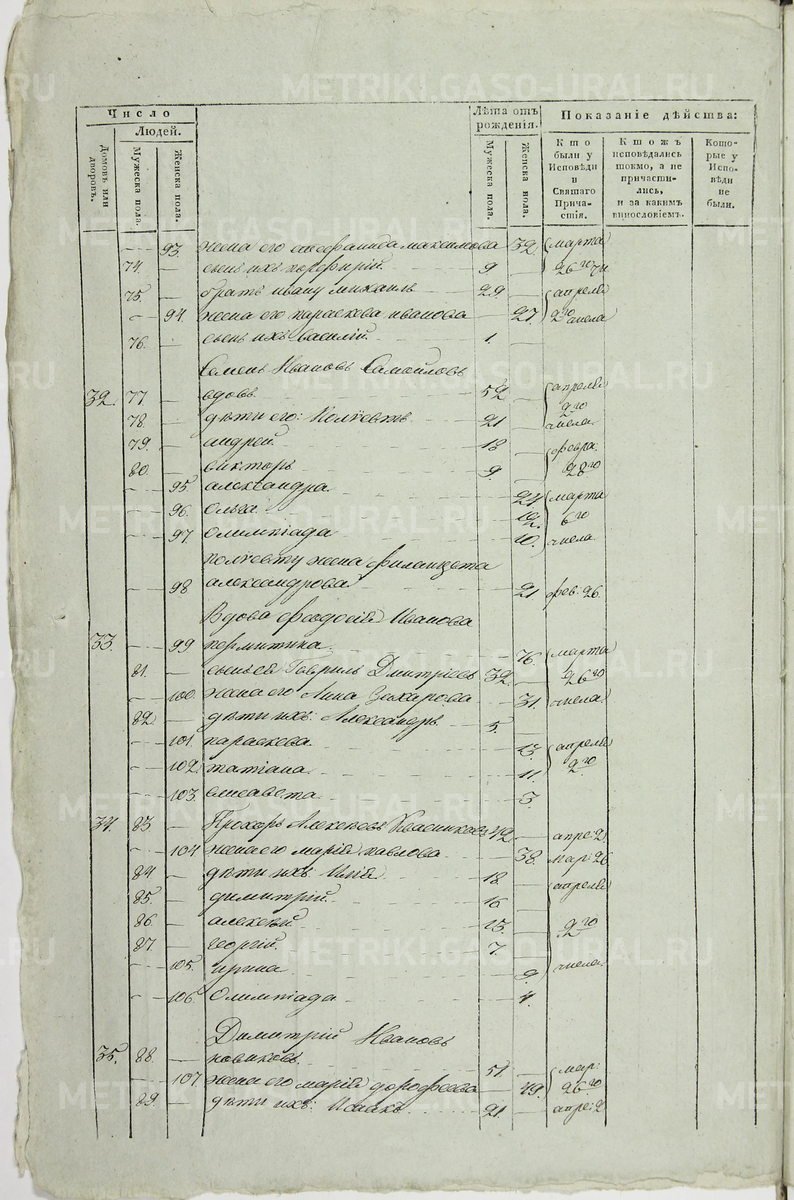 Число
Людей.
Домовъ или дворовъ.
Мужеска пола.
Женска пола.
Лѣта отъ рожденія.
Мужеска пола.
Женска пола.
Показаніе дѣйства:
Кто были у Исповѣди и Святаго Прича- стія.
Ктожъ исповѣдались токмо, а не причасти- лись, и за какимъ винословіемъ.
Кото- рые у Испо- вѣди не были.
93. жена его максимова 32. марта
74. сынъ ихъ порфирій 9 26го
75. братъ ивану михаилъ 29 апреля
94. жена его параскева иванова 27. 2го числа
76. сынъ ихъ василій. 1.
Семенъ Ивановъ Самойловъ
32. 77 вдовъ 52 апреля
78. дѣти его: Полїевктъ 21 2го числа
79. андрей 18 февра.
80. викторъ 9. 28го
95 александра. 24 марта
96. Ольга. 12. 6го
97 Олимпіада 10. числа
полїевкту жена филицета
98 александрова 21 фев. 26.
Вдова феодосія Иванова
33. 99 пермитина. 76. марта
81. сынъ ея Гавриилъ Дмитріевъ 32. 26го
100. жена его Анна Захарова 31. числа
82. дѣти ихъ: Александръ. 5.
101. параскева. 13. апреля
102. татіана. 11 2го
103. елисавета 3.
34. 83 Прохоръ Алексѣевъ Квасниковъ 42. апре: 2
104 жена его марія павлова 38. мар: 26
84 дѣти ихъ: Илія 18. апреля
85. димитрій. 16.
86. алексѣй. 13. 2го
87. георгій. 7. числа
105. ирина 9.
106. Олимпіада 4.
Димитрій Ивановъ
35. 88. новиковъ. 51. мар:
107 жена его марія дорофеева 49. 26го
89. дѣти ихъ: Исаакъ 21. апре: 2
METRIKI.GASO-URAL.RU